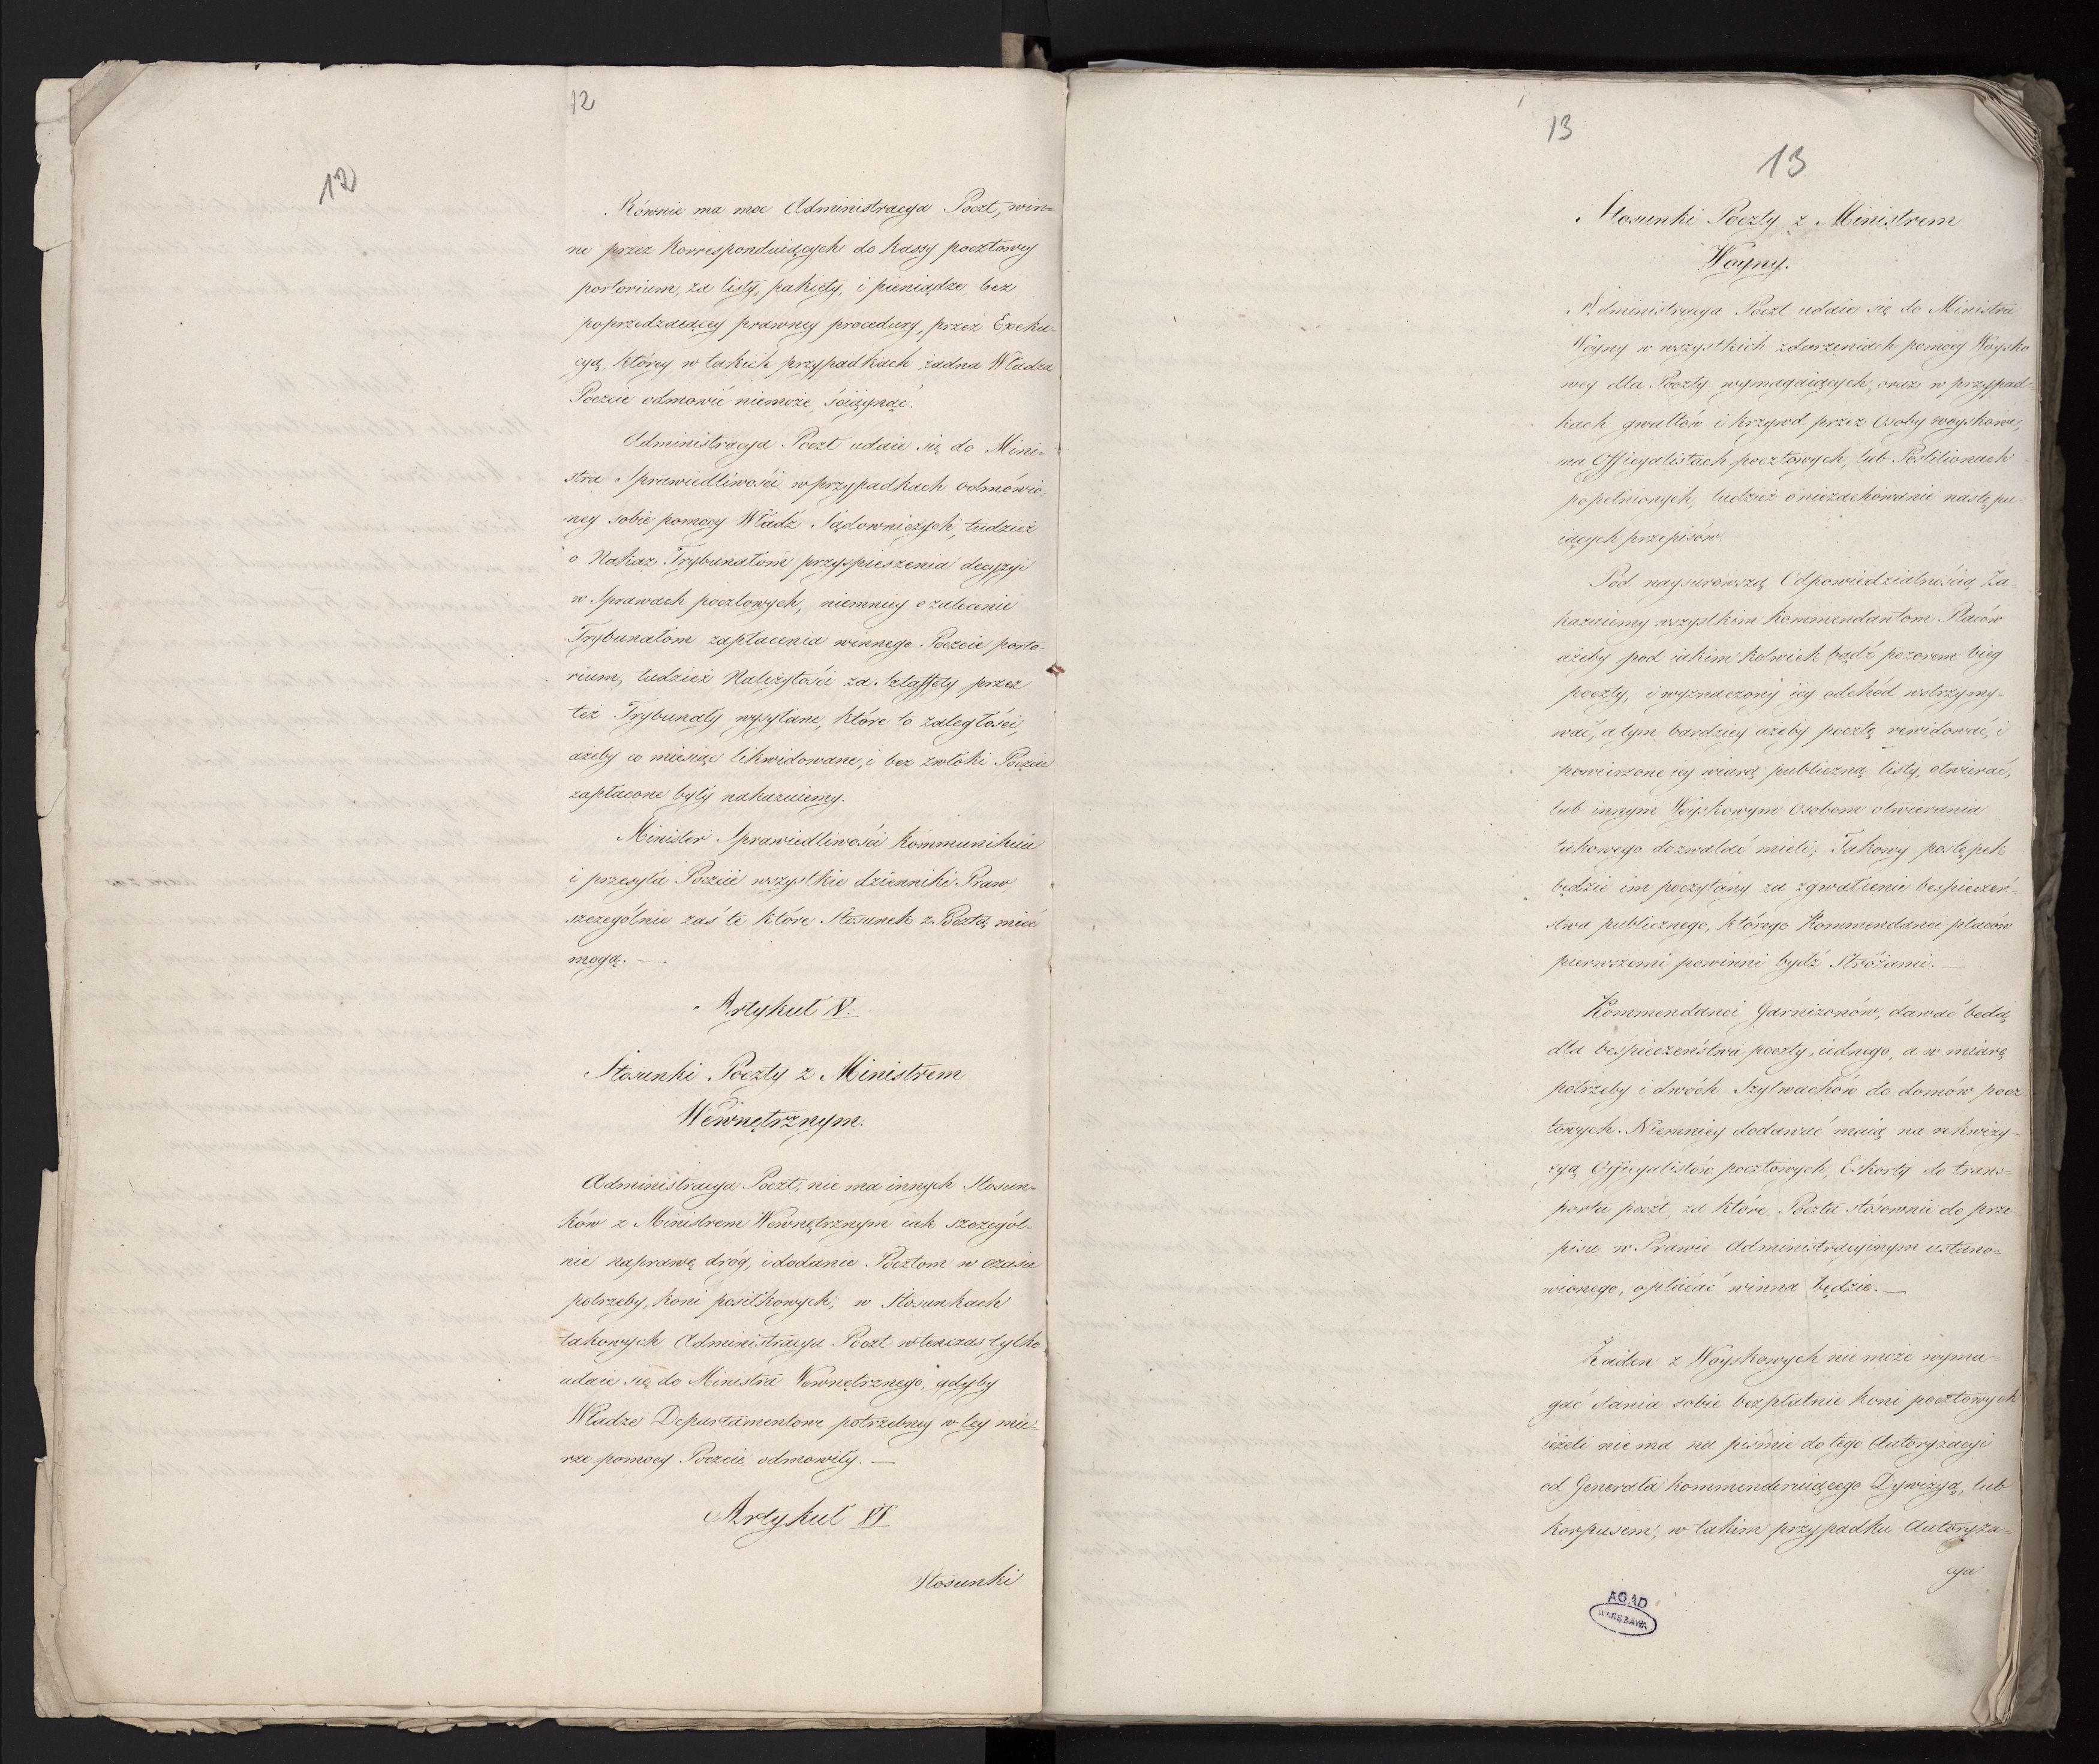 12
12
Równie ma moc Administracya Poczt, win=
ne przez Korrespondujących do Kassy pocztowey
portorium, za listy, pakiety, i pieniądze bez
poprzedzaiącey prawney procedury, przez Exeku-
cyą, którey w takich przypadkach żadna Władza
Poczcie odmowić niemoże, ściągnąć.
Administracya Poczt udaie się do Mini-
stra Sprawiedliwości w przypadkach odmówio-
ney sobie pomocy Władz Sądowniczych, tudzież
o Nakaz Trybunałom przyspieszenia decyzyi
w Sprawach pocztowych, niemniey o zalecenie
Trybunałom zapłacenia winnego Poczcie porto-
rium, tudzież Należytości za Sztaffety przez
też Trybunały wysyłane, które to zaległości,
ażeby co miesiąc likwidowane, i bez zwłoki Poczcie
zapłacone były nakazuiemy.
Minister Sprawiedliwości kommunikuie
i przesyła Poczcie wszystkie dzienniki Praw
szczególnie zaś te które Stosunek z Pocztą mieć
mogą. —
Artykuł V.
Stosunki Poczty z Ministrem
Wewnętrznym.
Administracya Poczt, nie ma innych Stosun-
ków z Ministrem Wewnętrznym iak szczegól-
nie naprawę dróg, i dodanie Pocztom w czasie
potrzeby, koni posiłkowych; w Stosunkach
takowych Administracya Poczt wtenczas tylko
udaie się do Ministra Wewnętrznego, gdyby
Władze Departamentowe potrzebney w tey mie-
rze pomocy Poczcie odmowiły. —
Artykuł VI
Stosunki
13
13
Stosunki Poczty z Ministrem
Woyny.
Administracya Poczt udaie się do Ministra
Woyny w wszystkich zdarzeniach pomocy Woysko
wey dla Poczty wymagaiących, oraz w przypad-
kach gwałtów i krzywd przez Osoby woyskowe,
na Officyalistach pocztowych, lub Postilionach
popełnionych, tudzież o niezachowanie następu-
iących przepisów.
Pod naysurowszą Odpowiedzialnością Za-
kazuiemy wszystkim Kommendantom Placów
ażeby pod iakim kolwiek bądź pozorem bieg
poczty, i wyznaczony iey odchód wstrzymy-
wać, a tym bardziey ażeby pocztę rewidować, i
powierzone iey wiarą publiczną listy, otwierać,
lub innym Woyskowym Osobom otwierania
takowego dozwalać mieli; Takowy postępek
będzie im poczytany za zgwałcenie bespieczeń-
stwa publicznego, którego Kommendanci placów
pierwszemi powinni bydź Stróżami. —
Kommendanci Garnizonów, dawać będą
dla bespieczeństwa poczty, iednego, a w miarę
potrzeby i dwóch Szyłwachów do domów pocz-
towych. Niemniey dodawać maią na rekwizy-
cyą Officyalistów pocztowych, Eskorty do trans=
portu poczt, za które Poczta stósownie do prze
pisu w Prawie Administracyinym ustano=
wionego, opłacać winna będzie. —
Żaden z Woyskowych nie może wyma-
gać dania sobie bezpłatnie koni pocztowych
ieżeli nie ma na piśmie do tego Autoryzacyi
od Generała kommenderuiącego Dywizyą, lub
korpusem; w takim przypadku Autoryza=
cya
AGAD
WARSZAWA